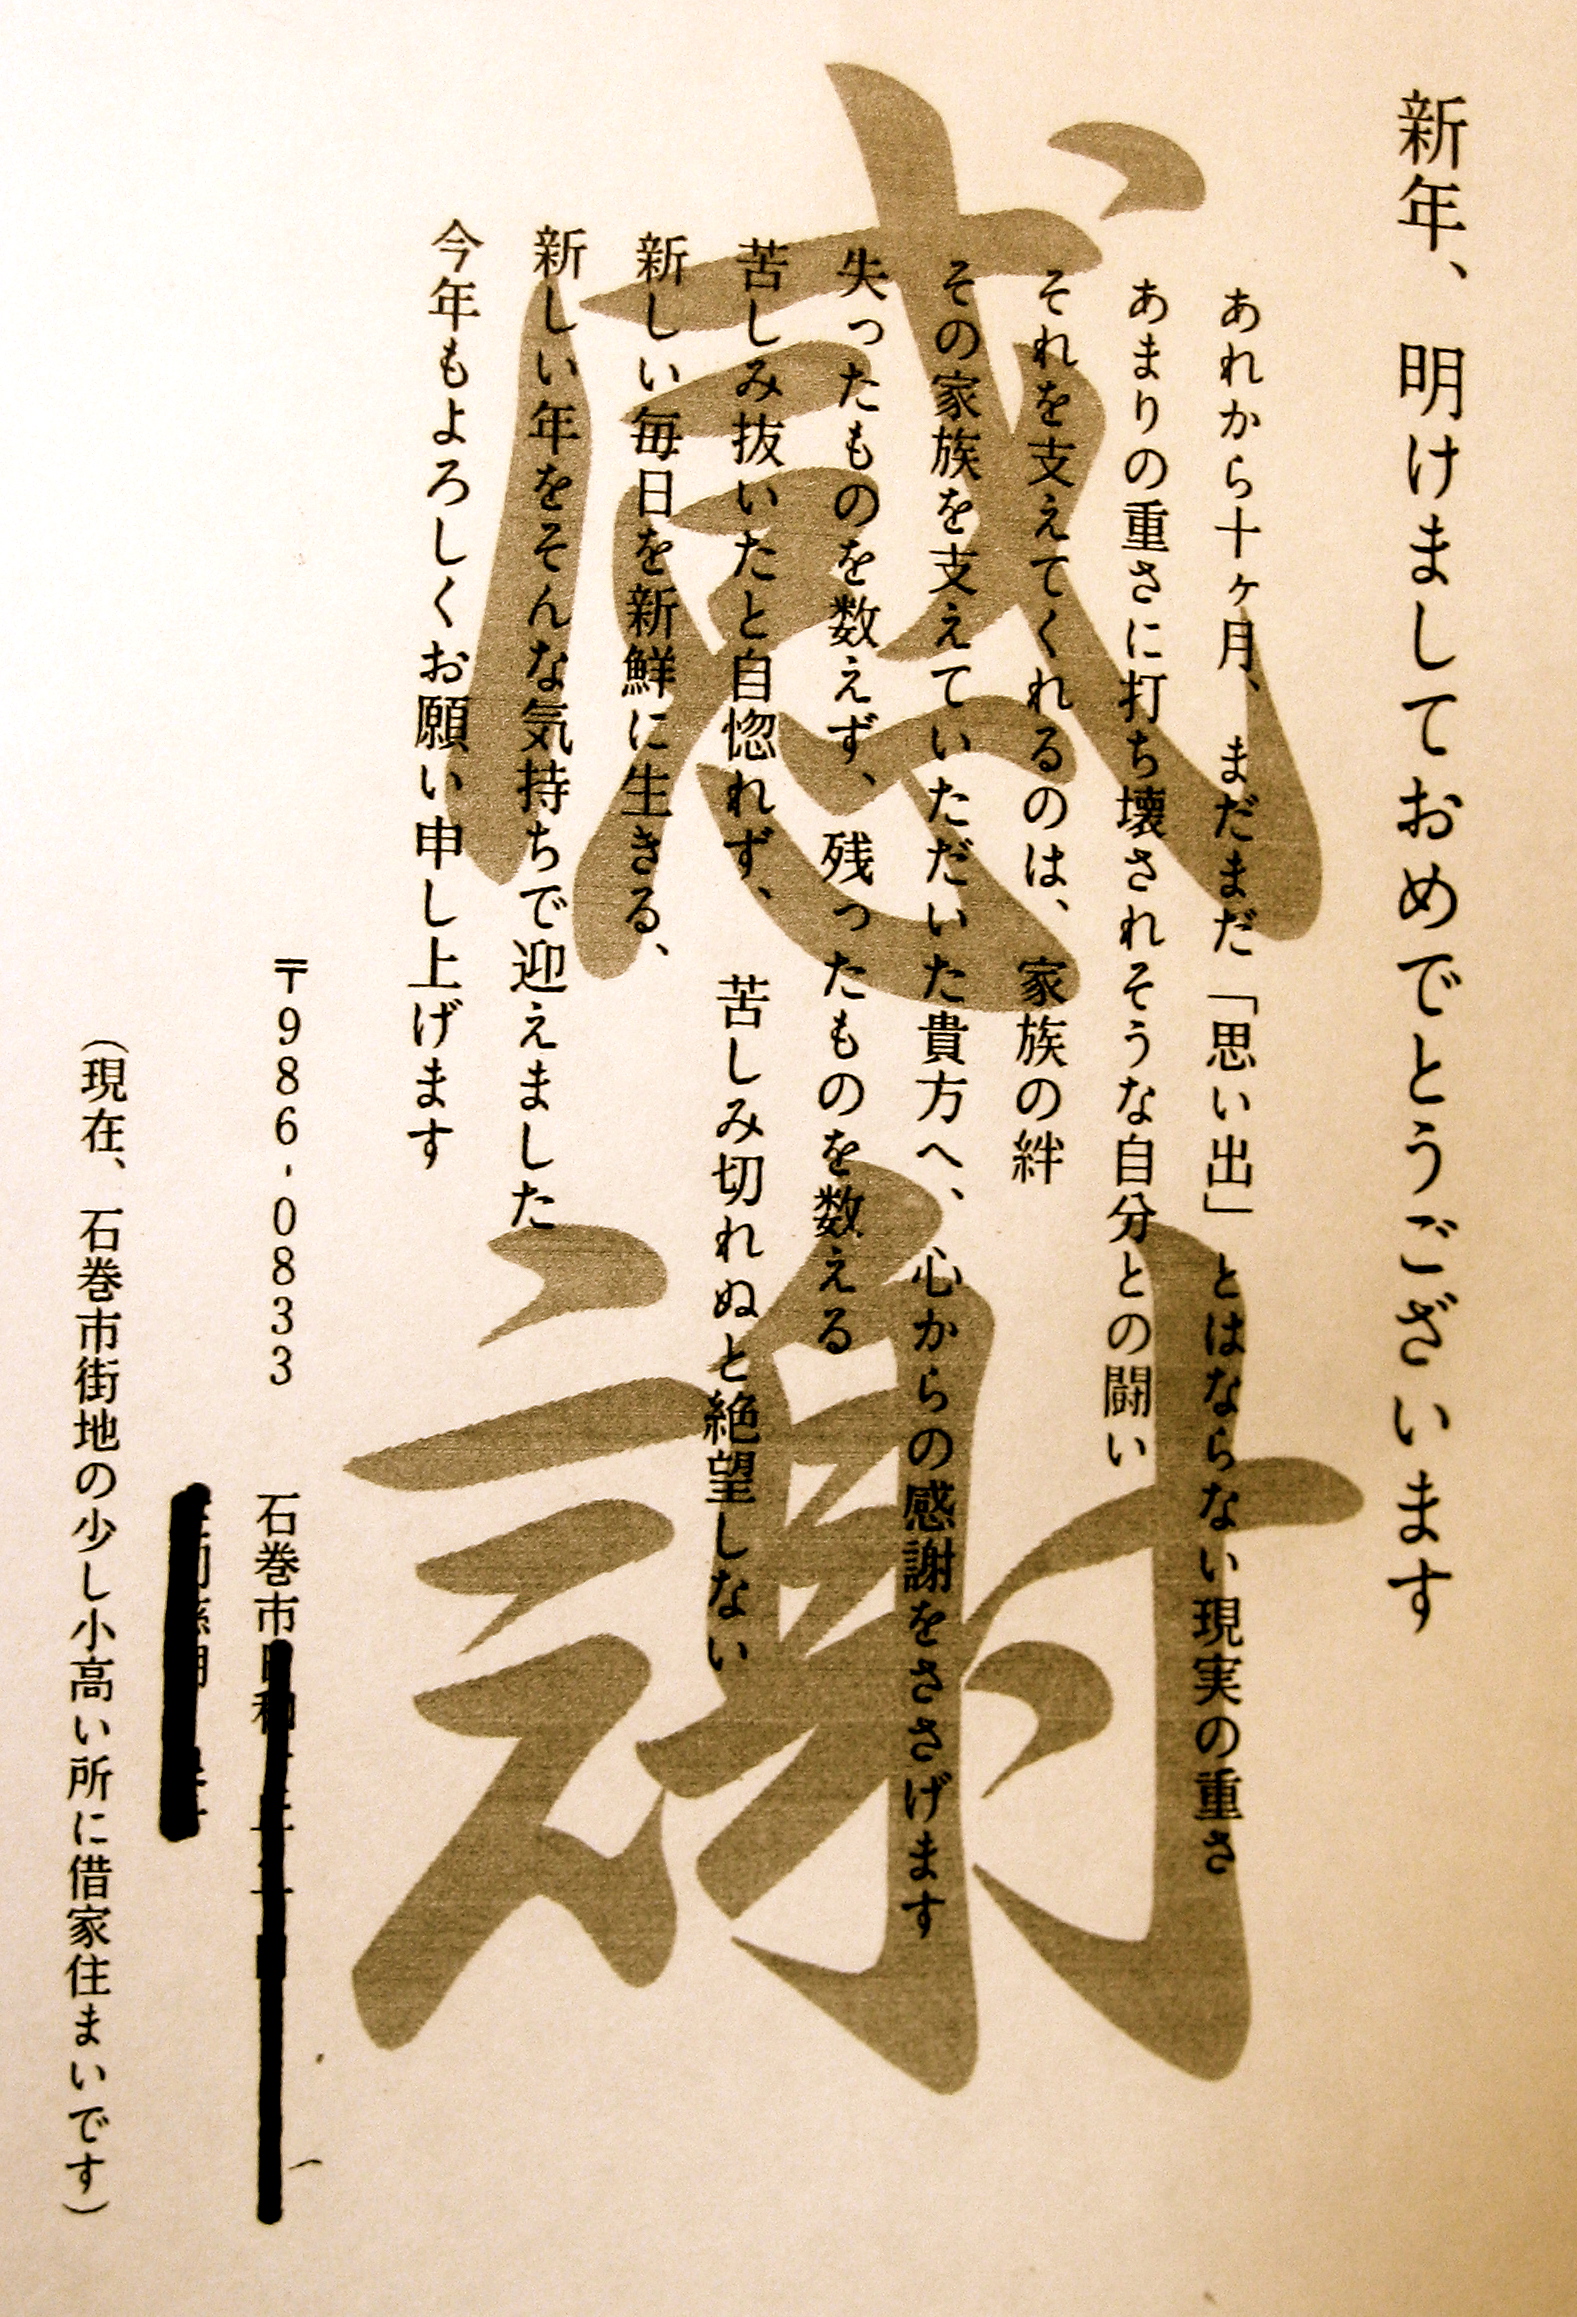 新年、明けましておめでとうございます
あれから十ヶ月、まだまだ「思い出」とはならない現実の重さ
あまりの重さに打ち壊されそうな自分との闘い
それを支えてくれるのは、家族の絆
その家族を支えていただいた貴方へ、心からの感謝をささげます
失ったものを数えず、残ったものを数える
苦しみ抜いたと自惚れず、苦しみ切れぬと絶望しない
新しい毎日を新鮮に生きる、
新しい年をそんな気持ちで迎えました
今年もよろしくお願い申し上げます
感謝
〒986-0833 石巻市
(現在、石巻市街地の少し小高い所に借家住まいです)